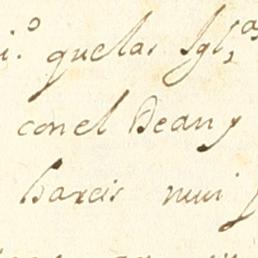 i.º quelas Igl.ªs
conel Dean y
harcis mui